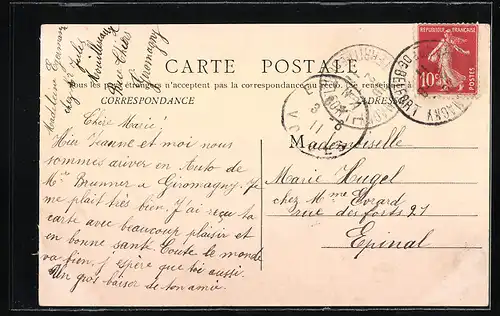 Madeleine Germain
chez Mr Jules
Rue Thiers
Giromagny
CARTE POSTALE
Tous les pays étrangers n'acceptent pas la correspondance au recto. Se renseigner à
CORRESPONDANCE
ADRES
REPUBLIQUE FRANÇAISE
10c
POSTES
DE BELFORT
Chère Marie
Hier Jeanne et moi nous
sommes ariver en Auto de
Mr Brunner a Giromagny. Je
me plait très bien. J'ai reçu ta
carte avec beaucoup plaisir et
en bonne santé Toute le monde
va bien. J'espère que toi aussi.
Un gros baiser de ton amie
Mademoiselle
Marie Hugel
chez Mme Evrard
rue des forts 21
Epinal